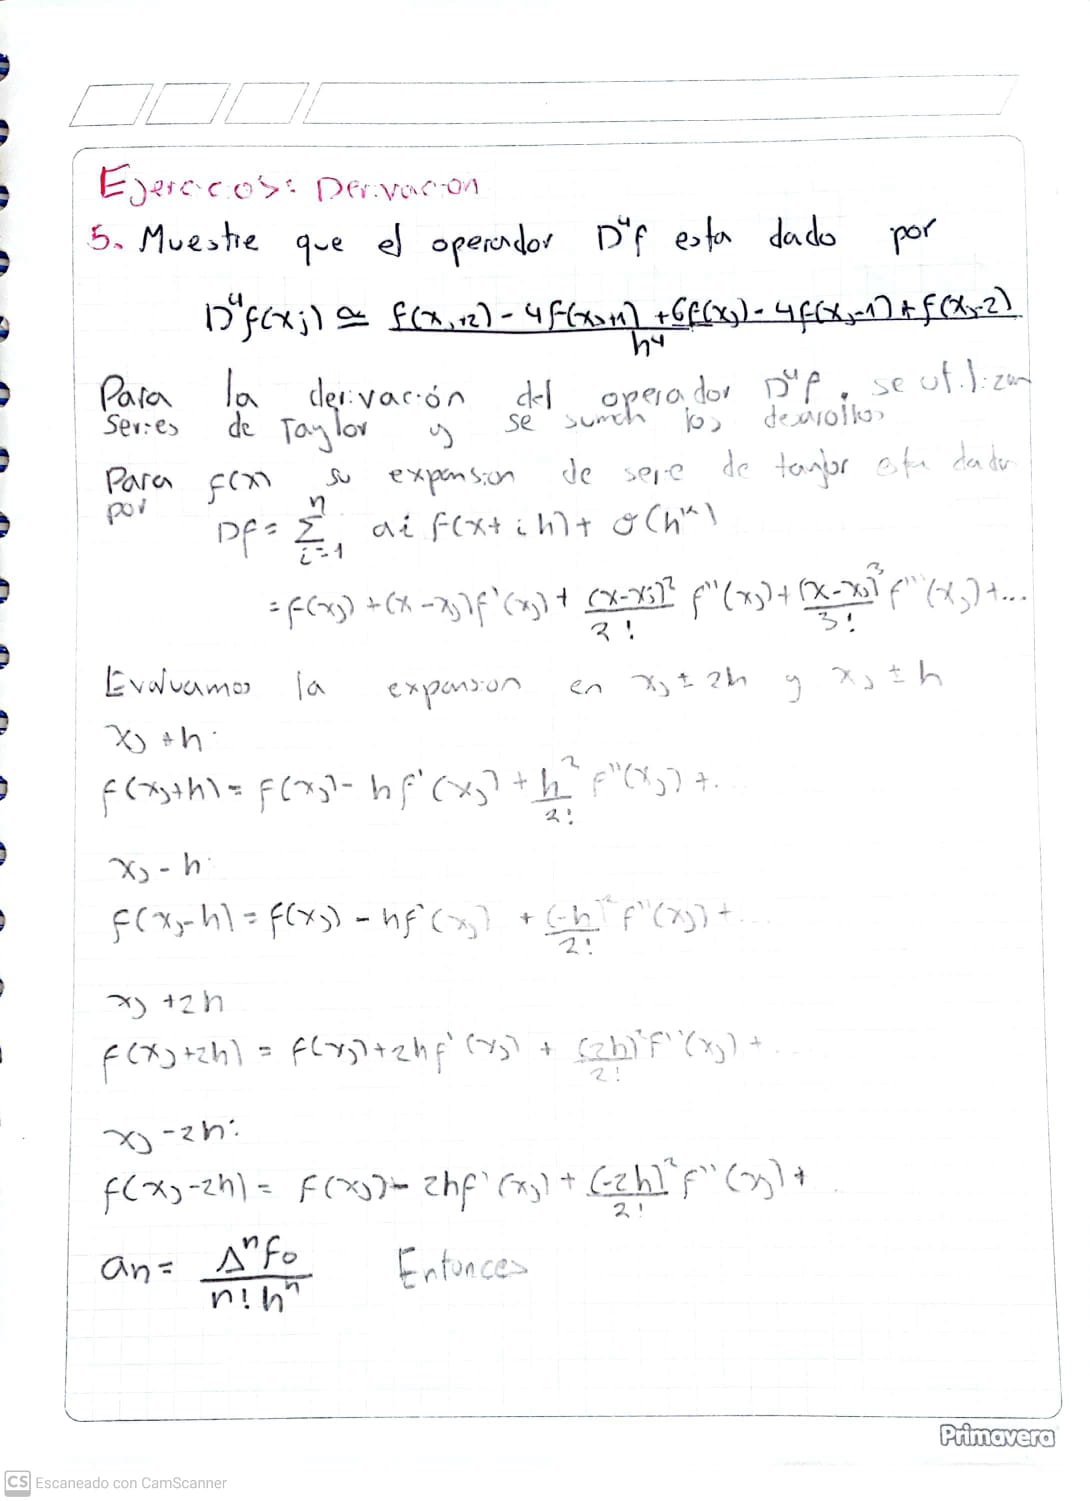 Ejercicios: Derivacion
5. Muestre que el operador D⁴f esta dado por
D⁴f(xj) ≅ f(xj+2) - 4f(xj+1) + 6f(xj) - 4f(xj-1) + f(xj-2)
h⁴
Para la derivación del operador D⁴f, se utilizan
series de Taylor y se suman los desarollos
Para f(x) su expansion de serie de taylor esta dada
por
Df = Σ ai f(x+ih) + O(hⁿ)
n
i=1
= f(xj) + (x-xj)f'(xj) + (x-xj)²/2! f''(xj) + (x-xj)³/3! f'''(xj) + ...
Evaluamos la expansion en xj ± 2h y xj ± h
xj + h:
f(xj+h) = f(xj) - hf'(xj) + h²/2! f''(xj) + ..
xj - h:
f(xj-h) = f(xj) - hf'(xj) + (-h)²/2! f''(xj) + ...
xj + 2h
f(xj+2h) = f(xj) + 2hf'(xj) + (2h)²/2! f''(xj) + ..
xj - 2h:
f(xj-2h) = f(xj) - 2hf'(xj) + (-2h)²/2! f''(xj) + .
an = Δⁿf₀/n!hⁿ Entonces
Primavera
CS Escaneado con CamScanner